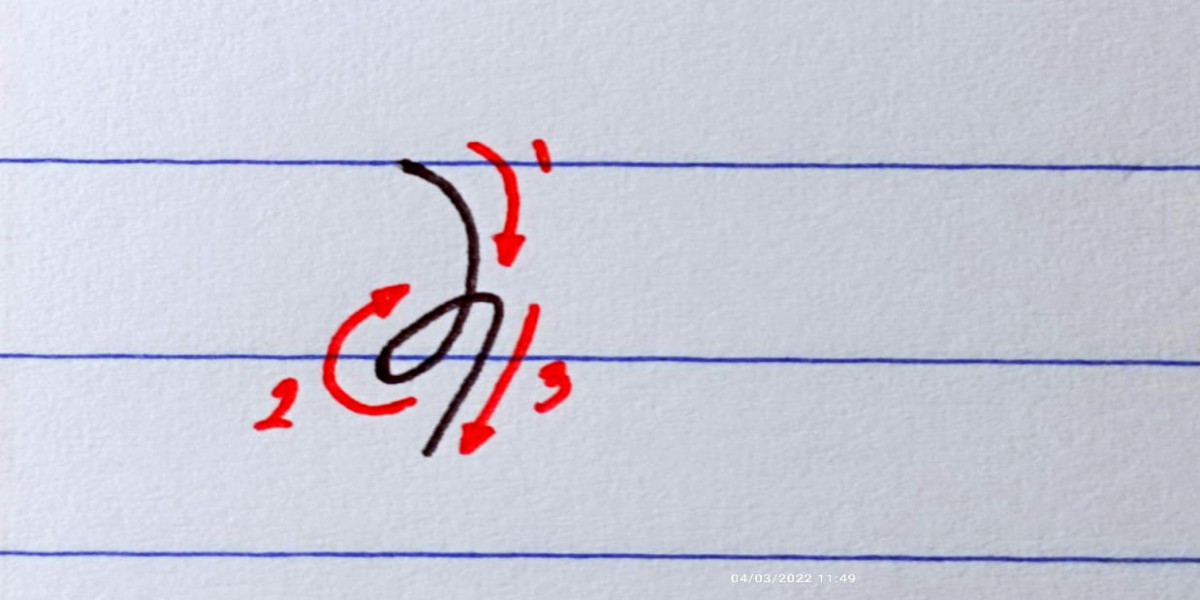 1
2 3
04/03/2022 11:49